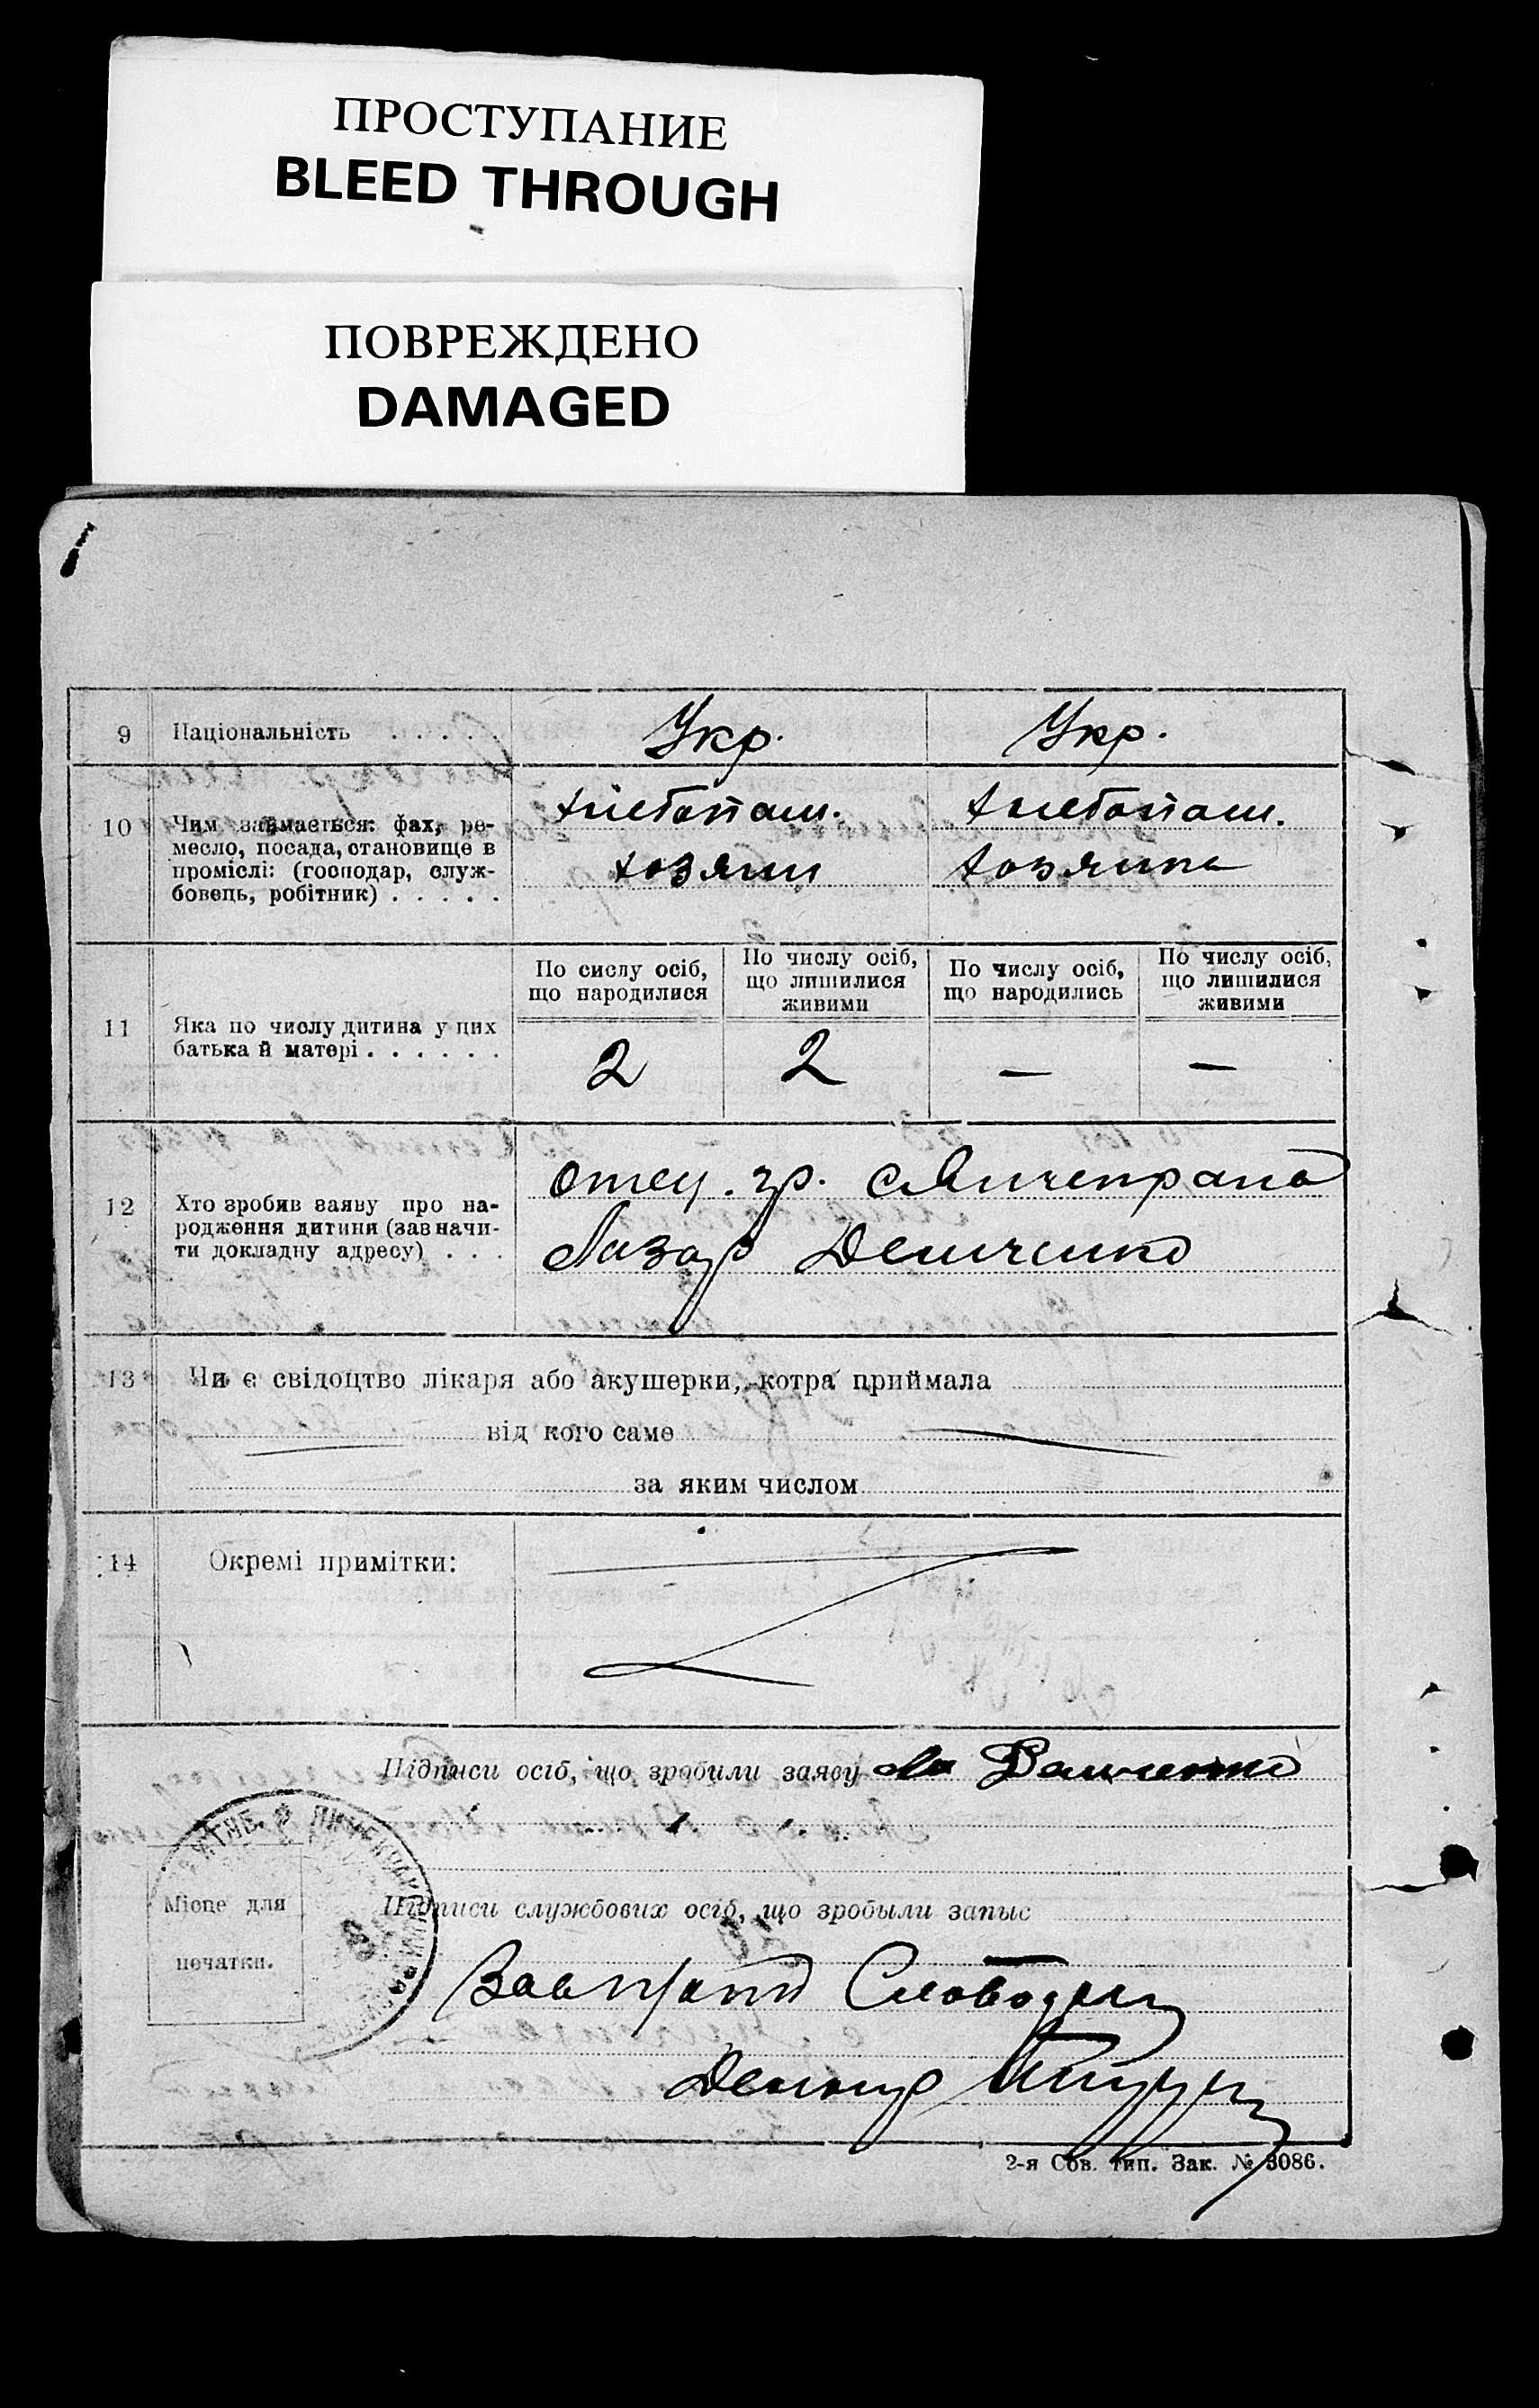 ПРОСТУПАНИЕ
BLEED THROUGH
ПОВРЕЖДЕНО
DAMAGED
9 Національність . . . . . Укр. Укр.
10 Чим займається: фах, ре-
месло, посада, становище в
проміслі: (господар, служ-
бовець, робітник) . . . . .
хлебопаш. хлебопаш.
хозяин хозяина
11 Яка по числу дитина у цих
батька й матері . . . . . .
По сислу осіб,
що народилися
По числу осіб,
що лишилися
живими
По числу осіб,
що народились
По числу осіб,
що лишилися
живими
2 2 — —
12 Хто зробив заяву про на-
родження дитини (зазначи-
ти докладну адресу) . . .
отец. гр.
Лазар Демченко
13 Чи є свідоцтво лікаря або акушерки, котра приймала
від кого саме
за яким числом
14 Окремі примітки:
Підписи осіб, що зробили заяву Ла Демченко
Місце для
печатки.
Підписи службових осіб, що зробыли запыс
Слободян
2-я Сов. тип. Зак. № 3086.